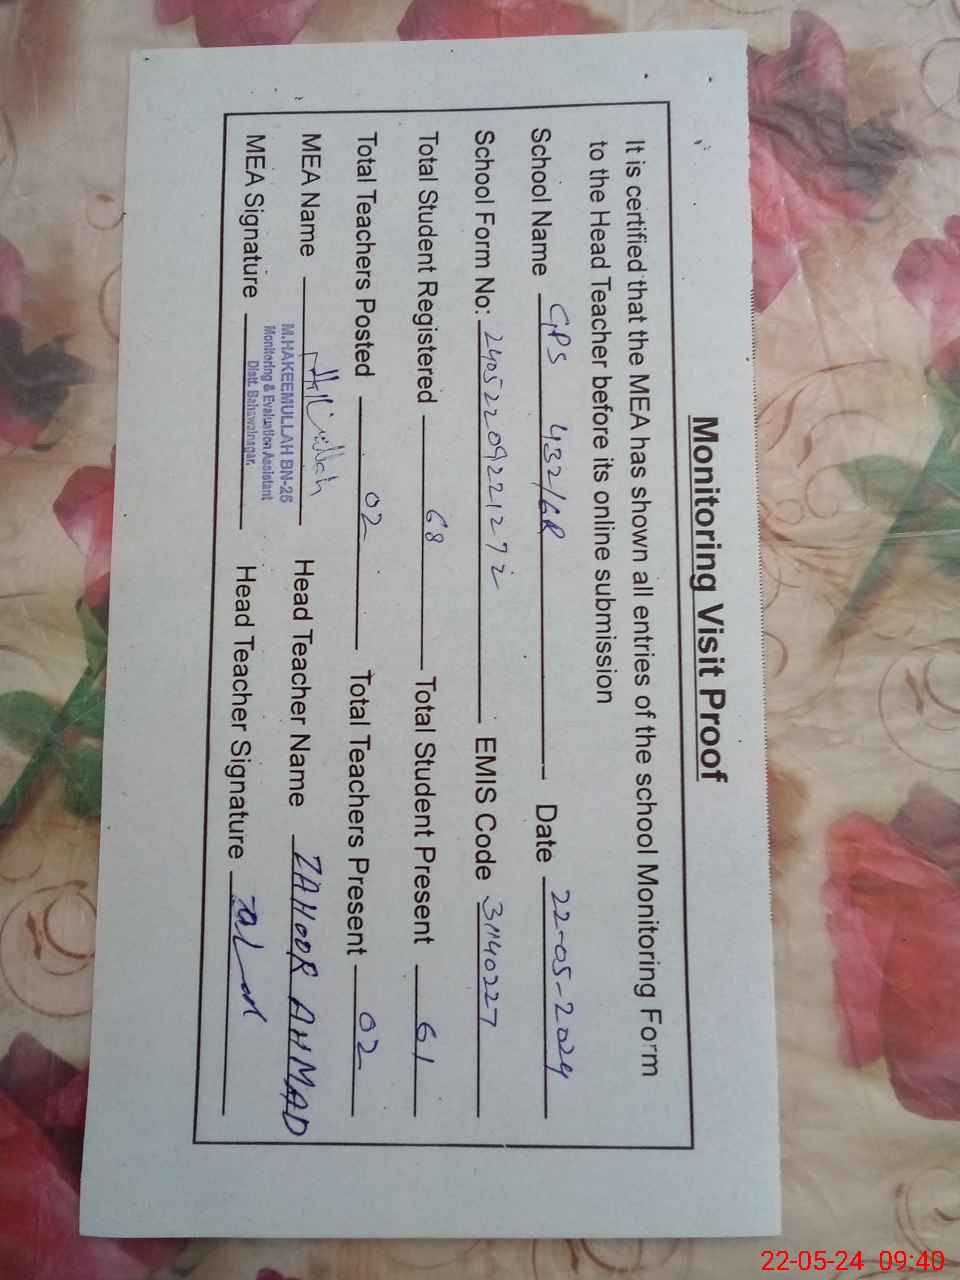 Monitoring Visit Proof
It is certified that the MEA has shown all entries of the school Monitoring Form
to the Head Teacher before its online submission
School Name GPS 432/6R Date 22-05-2024
School Form No: 24052209221272 EMIS Code 31140227
Total Student Registered 68 Total Student Present 61
Total Teachers Posted 02 Total Teachers Present 02
MEA Name Head Teacher Name ZAHOOR AHMAD
M.HAKEEMULLAH BN-26
Monitoring & Evaluation Assistant
Distt. Bahawalnagar.
MEA Signature Head Teacher Signature
22-05-24 09:40